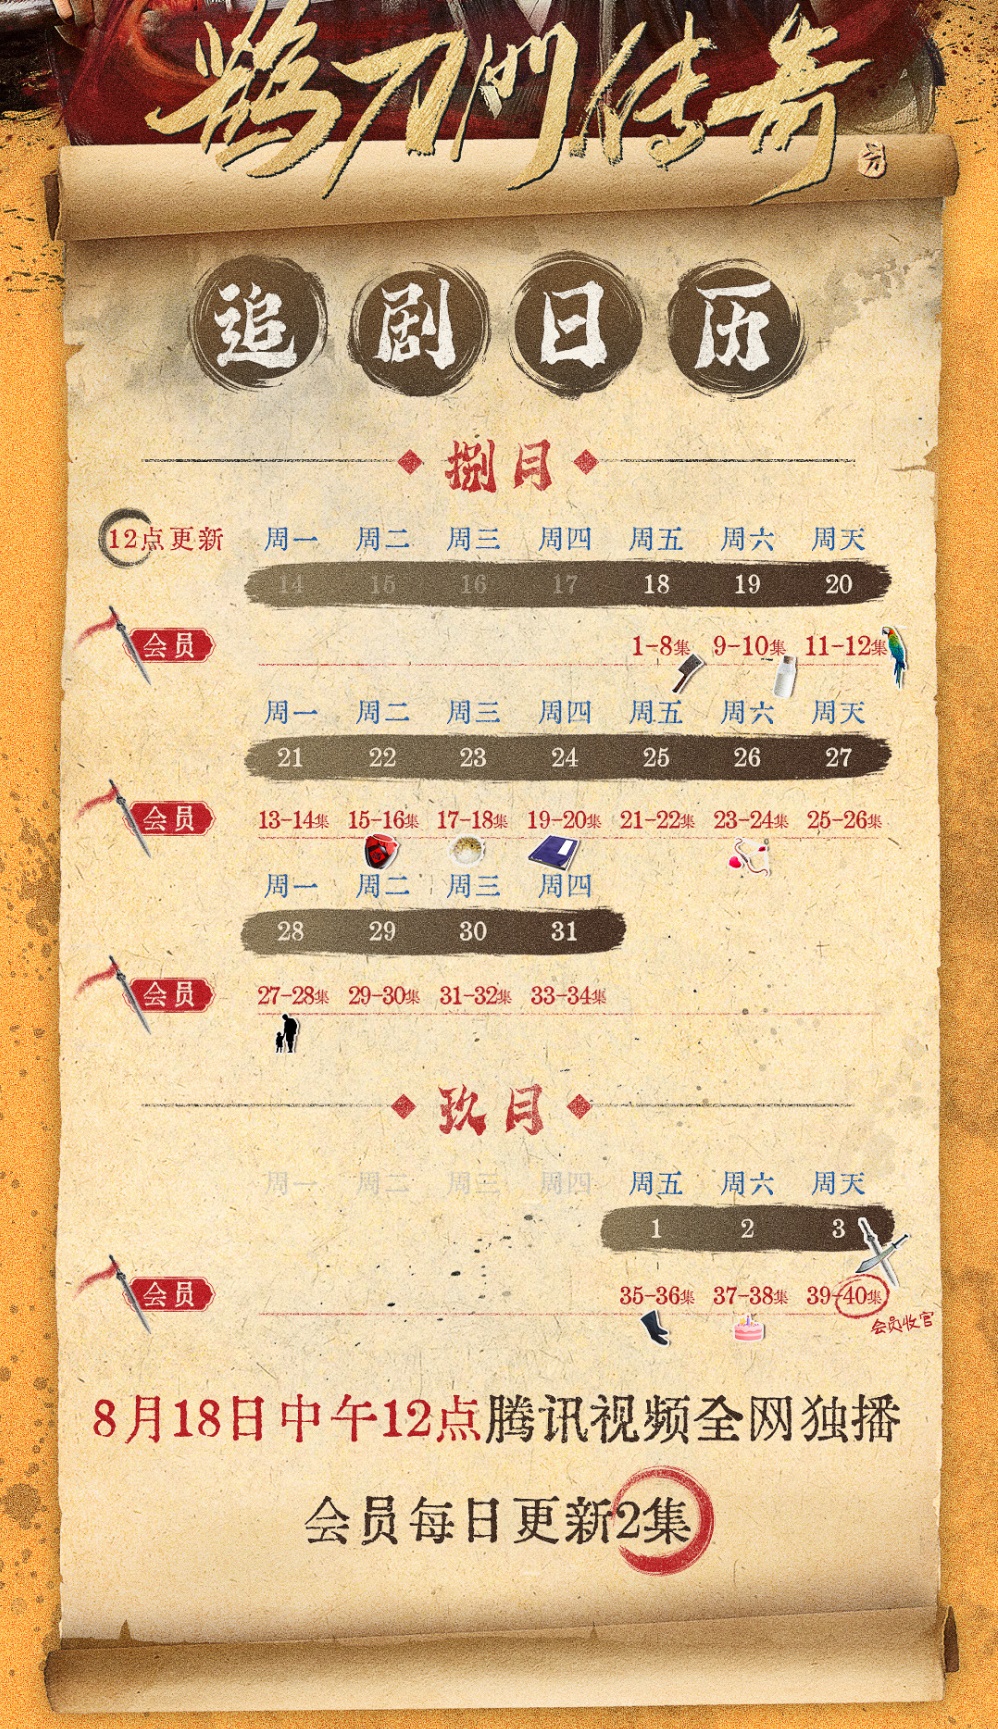 鹊刀門传奇
追剧日历
捌月
12点更新 周一 周二 周三 周四 周五 周六 周天
14 15 16 17 18 19 20
会员 1-8集 9-10集 11-12集
周一 周二 周三 周四 周五 周六 周天
21 22 23 24 25 26 27
会员 13-14集 15-16集 17-18集 19-20集 21-22集 23-24集 25-26集
周一 周二 周三 周四
28 29 30 31
会员 27-28集 29-30集 31-32集 33-34集
玖月
周一 周二 周三 周四 周五 周六 周天
1 2 3
会员 35-36集 37-38集 39-40集
会员收官
8月18日中午12点腾讯视频全网独播
会员每日更新2集